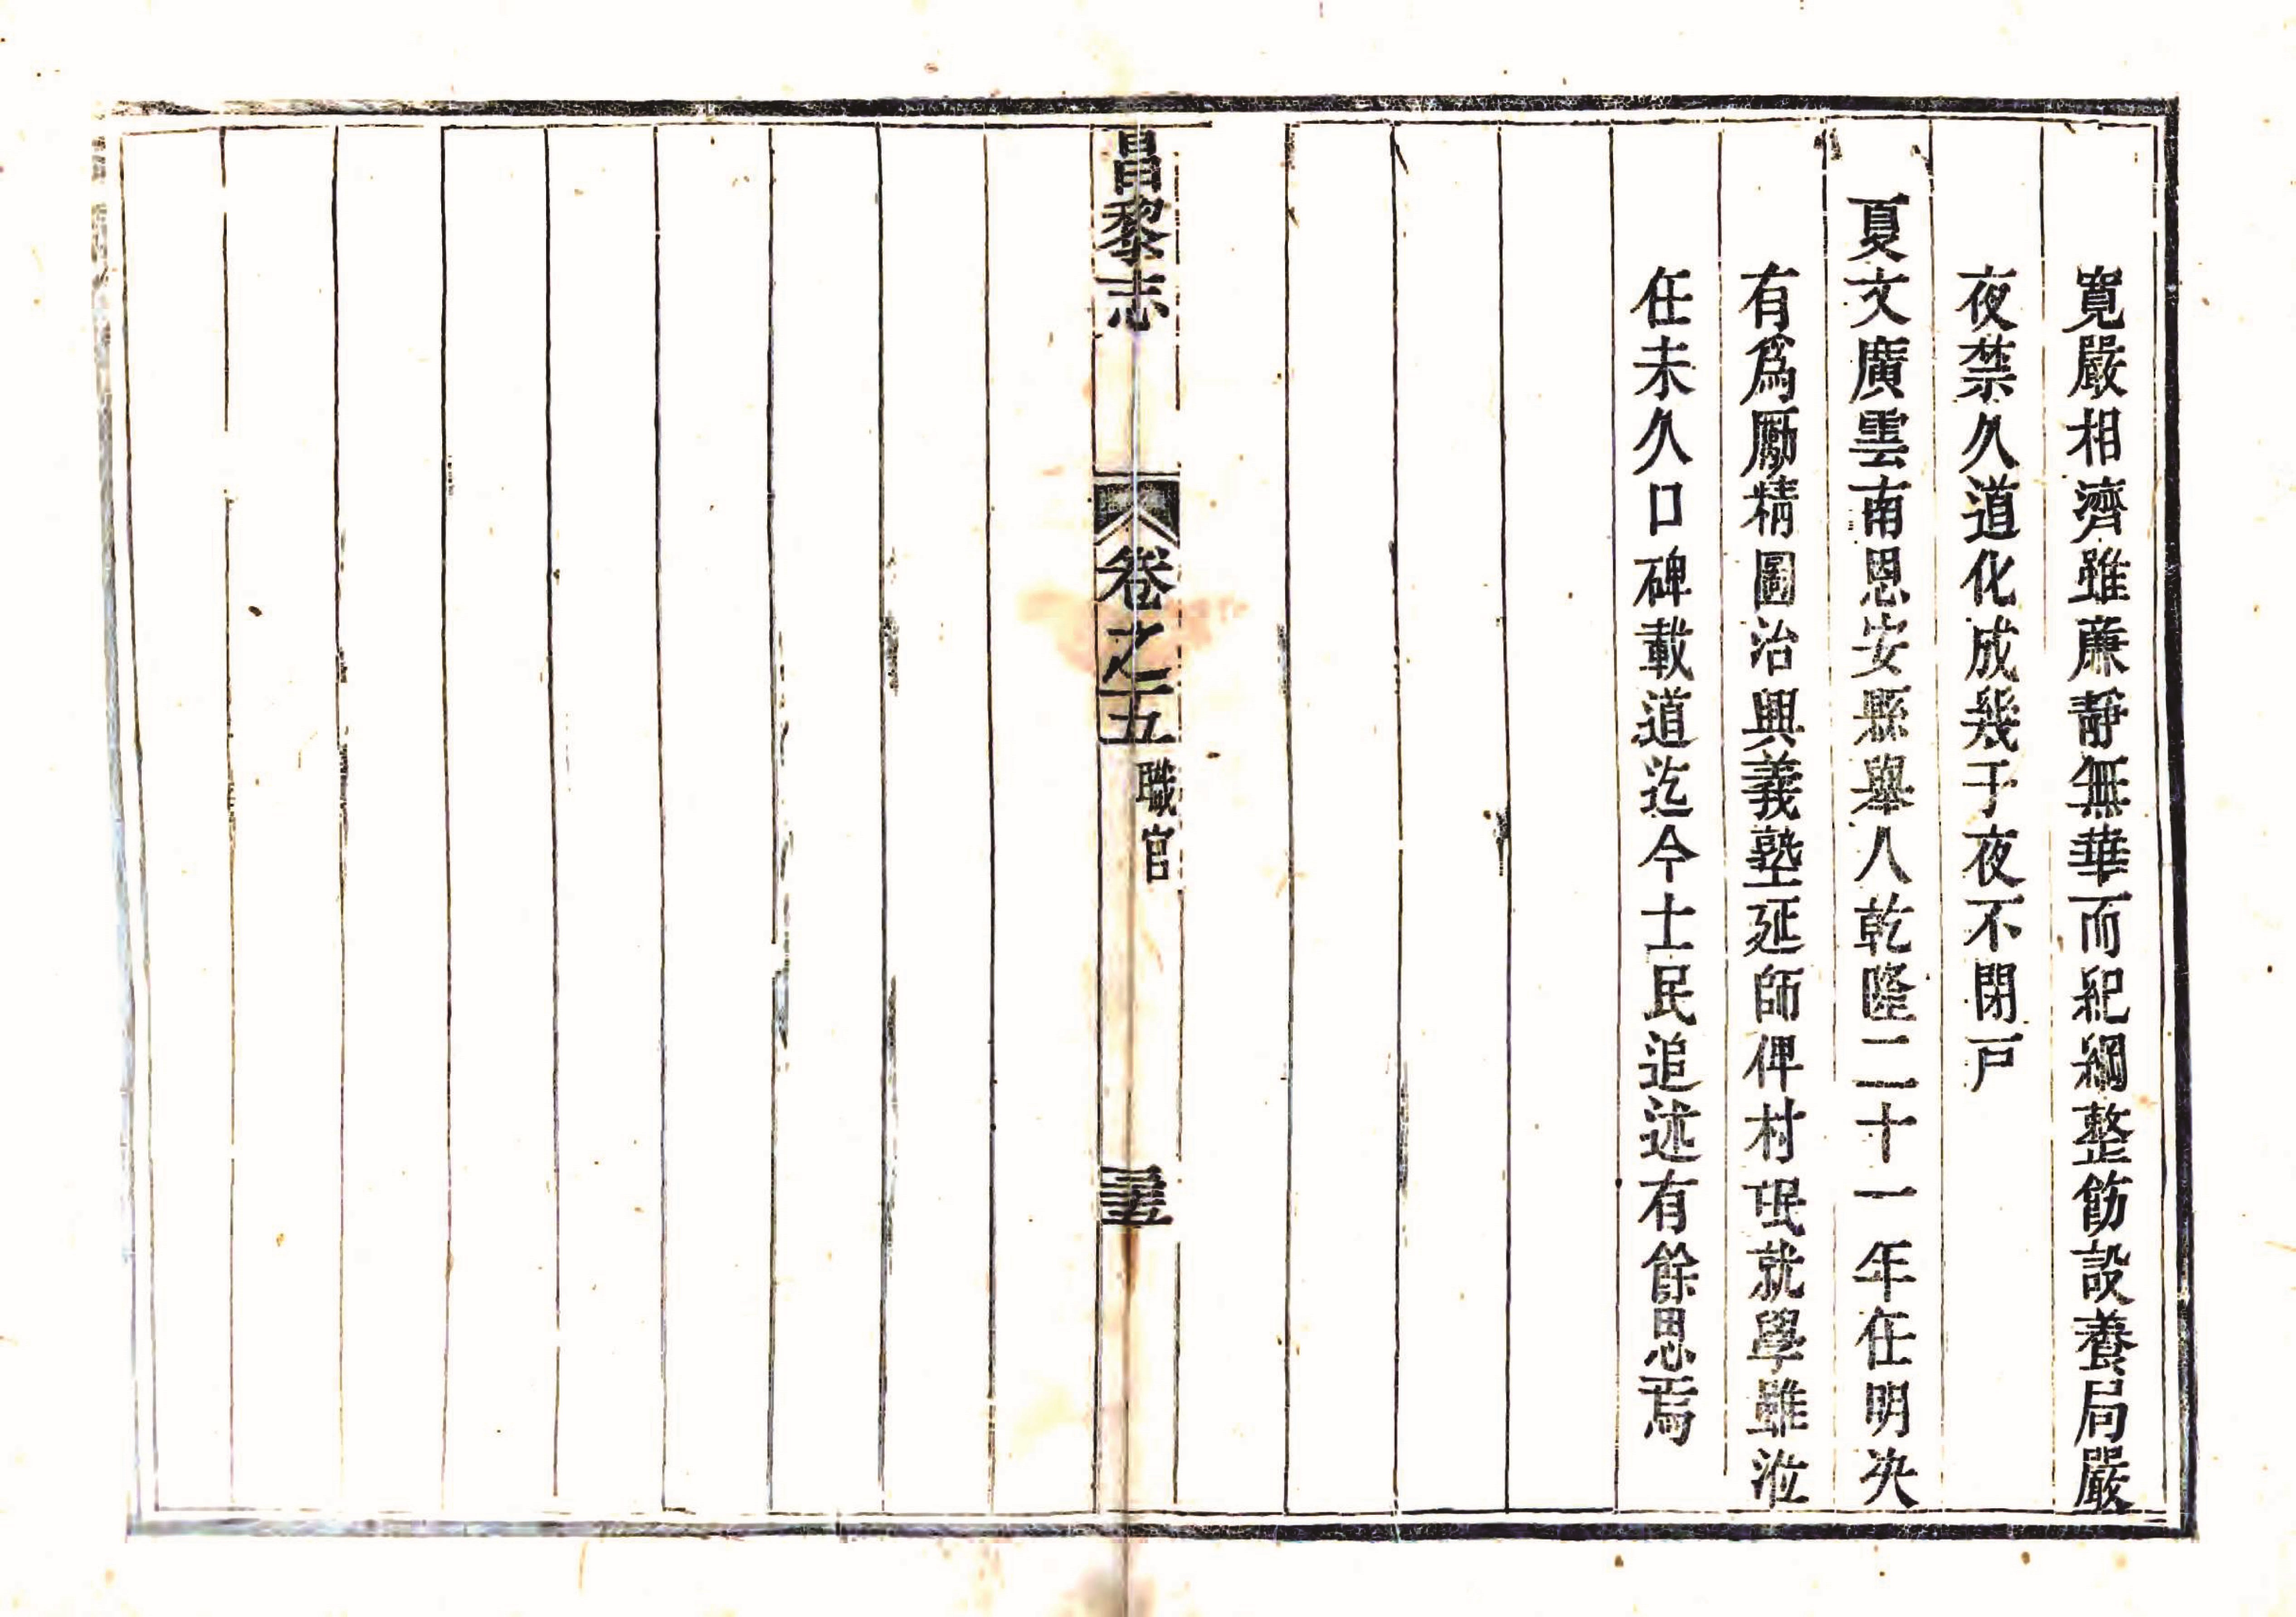 寬嚴相濟雖亷靜無華而紀綱整飭設養局嚴
夜禁久道化成幾于夜不閉戸
夏文廣雲南恩安縣舉人乾隆二十一年任明決
有爲勵精圖治興義塾延師俾村氓就學雖涖
任未久口碑載道迄今士民追述有餘思焉
昌黎志
卷之五
職官